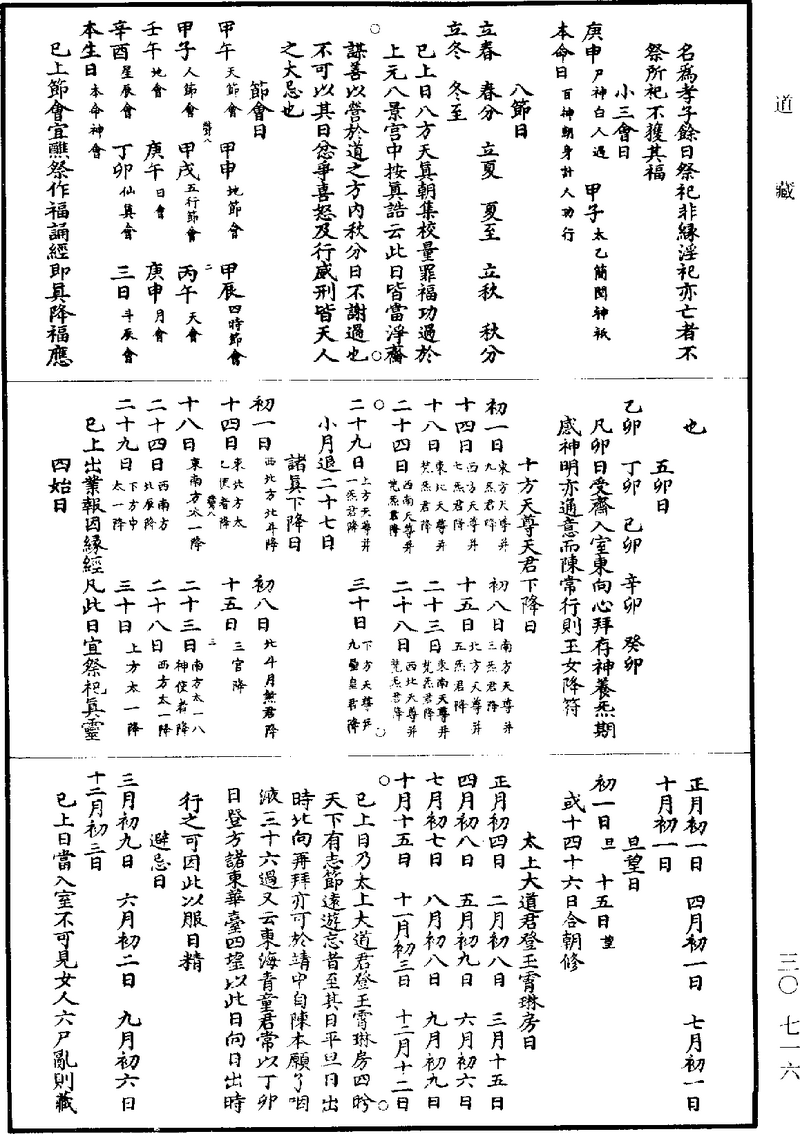 道藏
三〇 七一六
名爲孝子餘日祭祀非緣淫祀亦亡者不
祭所祀不獲其福
小三會日
庚申尸神白人過 甲子太乙簡閱神祇
本命日百神朝身計人功行
八節日
立春 春分 立夏 夏至 立秋 秋分
立冬 冬至
已上日八方天真朝集校量罪福功過於
上元八景宫中按真誥云此日皆當淨齋
謀善以營於道之方内秋分日不謝過也
不可以其日忿爭喜怒及行威刑皆天人
之大忌也
節會日
甲午天節會 甲申地節會 甲辰四時節會
甲子人節會 甲戌五行節會 丙午天會
壬午地會 庚午日會 庚申月會
辛酉星辰會 丁卯仙真會 三日斗辰會
本生日本命神會
已上節會宜醮祭作福誦經即真降福應
也
五卯日
乙卯 丁卯 己卯 辛卯 癸卯
凡卯日受齋入室東向心拜存神養炁期
感神明亦通意而陳常行則玉女降符
十方天尊天君下降日
初一日東方天尊并九炁君降 初八日南方天尊并三炁君降
十四日西方天尊并七炁君降 十五日北方天尊并五炁君降
十八日東北天尊并梵炁君降 二十三日東南天尊并梵炁君降
二十四日西南天尊并梵炁君降 二十八日西北天尊并梵炁君降
二十九日上方天尊并一炁君降 三十日下方天尊并九壘皇君降
小月退二十七日
諸真下降日
初一日西北方北斗降 初八日北斗月煞君降
十四日東北方太乙使者降 十五日三官降
十八日東南方太一降 二十三日南方太一八神使者降
二十四日西南方北辰降 二十八日西方太一降
二十九日下方中太一降 三十日上方太一降
已上出業報因緣經凡此日宜祭祀真靈
四始日
正月初一日 四月初一日 七月初一日
十月初一日
旦望日
初一日旦 十五日望
或十四十六日合朝修
太上大道君登玉霄琳房日
正月初四日 二月初八日 三月十五日
四月初八日 五月初九日 六月初六日
七月初七日 八月初八日 九月初九日
十月十五日 十一月初三日 十二月十二日
已上日乃太上大道君登玉霄琳房四眄
天下有志節遠遊忘者至其日平旦日出
時北向再拜亦可於靖中自陳本願了咽
液三十六過又云東海青童君常以丁卯
日登方諸東華臺四望以此日向日出時
行之可因此以服日精
避忌日
三月初九日 六月初二日 九月初六日
十二月初三日
已上日當入室不可見女人六尸亂則藏